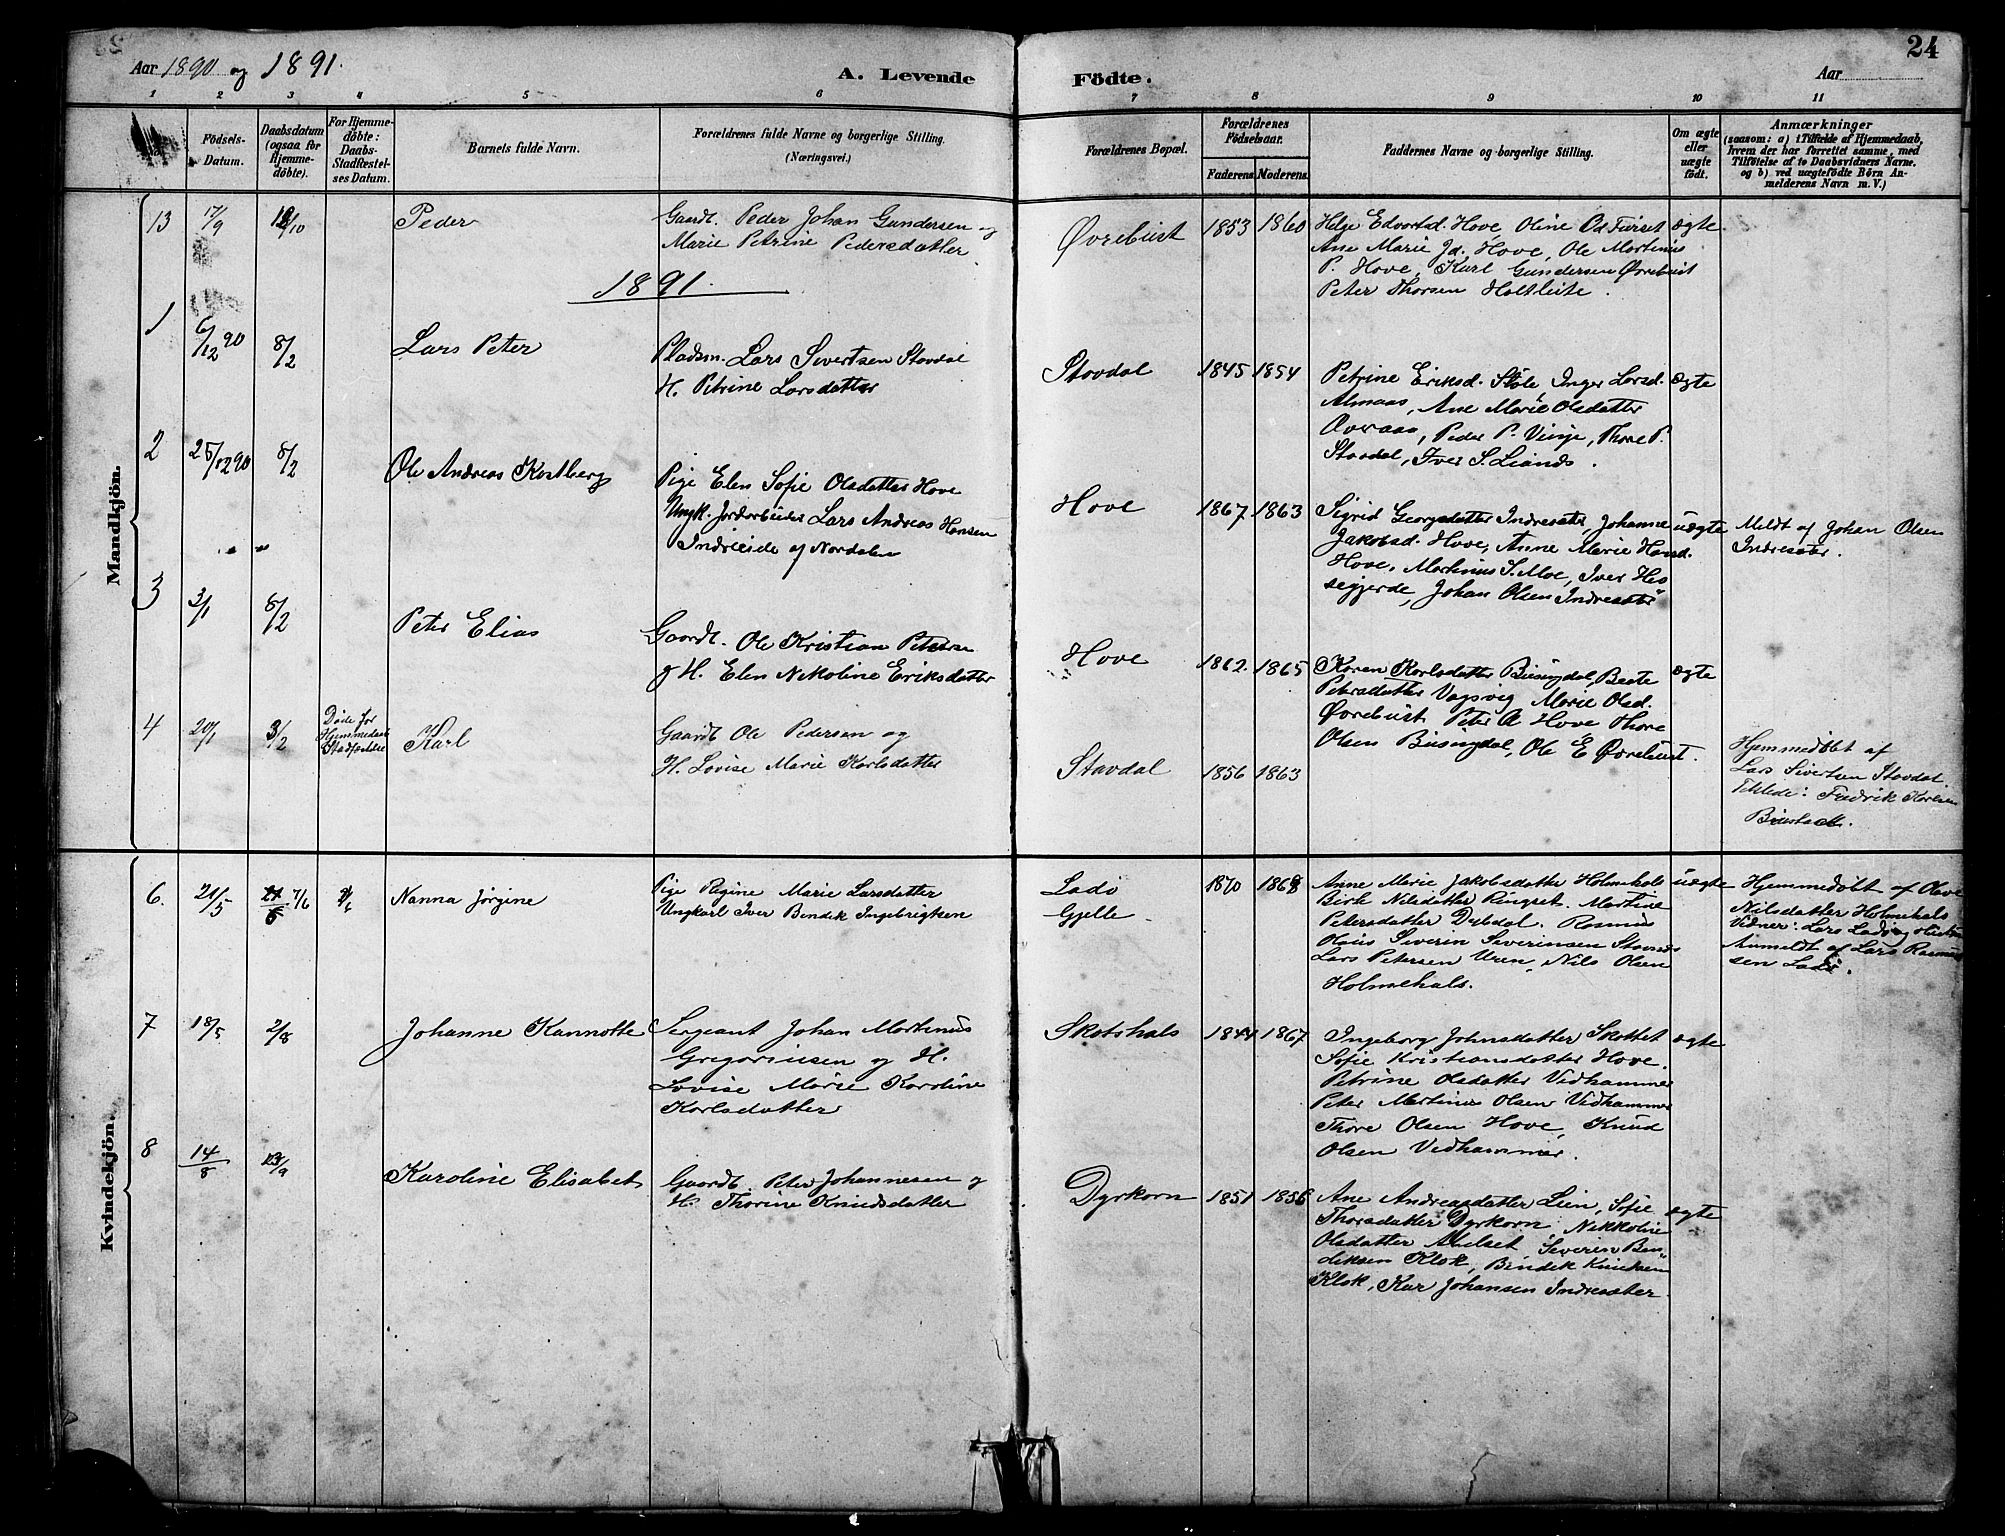 Aar 1890 og 1891.
A. Levende Födte.
Aar
24
1 2 3 4 5 6 7 8 9 10 11
Födsels-Datum.
Daabsdatum (ogsaa for Hjemme-döbte).
For Hjemme-döbte: Daabs-Stadfæstel-ses Datum.
Barnets fulde Navn.
Forældrenes fulde Navne og borgerlige Stilling. (Næringsvei.)
Forældrenes Bopæl.
Forældrenes Födselsaar.
Faderens Moderens.
Faddernes Navne og borgerlige Stilling.
Om ægte eller uægte født.
Anmærkninger
(saasom: a) i Tilfælde af Hjemmedaab, hvem der har forrettet samme, med Tilföielse af to Daabsvidners Navne. og b) ved uægtefödte Börn An-melderens Navn m. V.)
Mandkjön.
13 17/9 12/10 Peder
Gaardt. Peder Johan Gundersen og
Marie Petrine Pedersdatter
Øvrebust 1853 1860
Helge Edvardsd. Hove Oline Od Furset
Ane Marie Jd. Hove, Ole Martinus
P. Hove, Karl Gundersen Øvrebust
Peter Thorsen Holtleite.
ægte
1891.
1 6/12 90 8/2 Lars Peter
Pladsm. Lars Sivertsen Stavdal
H. Petrine Larsdatter
Stavdal 1845 1854
Petrine Eriksd. Støle Inger Larsd.
Almaas, Ane Marie Olsdatter
Overaas, Peder P. Vinje, Thore P.
Stavdal, Iver S. Liands.
ægte
2 25/12 90 8/2 Ole Andreas Kostberg
Pige Elen Sofie Olsdatter Hove
Ungk. Jordarbeider Lars Andreas Hansen
Indreeide af Nordalen
Hove 1867 1863
Sigrid Georgsdatter Indresæter, Johanne
Jakobsd. Hove, Anne Marie Hansd.
Hove, Martinus S. Moe, Iver Hes
segjerde, Johan Olsen Indresæter
uægte
Meldt af Johan Olsen
Indresæter.
3 3/1 8/2 Peter Elias
Gaardt. Ole Kristian Petersen
og H. Elen Nikoline Eriksdatter
Hove 1862 1865
Karen Karlsdatter Busingdal, Beate
Petersdatter Vagsvig Marie Olsd.
Øvrebust Peter A Hove Thore
Olsen Busingdal, Ole E Øvrebust.
ægte
4 20/1 3/2 Døde før
Hjemmedaab
Stadfæstelse
Karl
Gaardt Ole Pedersen og
H. Lovise Marie Karlsdatter
Stavdal 1856 1863
Hjemmedøbt af
Lars Sivertsen Stavdal
Tilstede: Fredrik Karlsen
Kvindekjön.
6. 21/5 7/6
Nanna Jørgine
Pige Regine Marie Larsdatter
Ungkarl Iver Bendik Ingebrigtsen
Ladø
Gjelle
1870 1868
Anne Marie Jakobsdatter Holmehals
Birte Nilsdatter Ringset. Martine
Petersdatter Dybdal. Rasmus
Olaus Severin Severinsen
Lars Petersen Uren, Nils Olsen
Holmehals.
uægte
Hjemmedøbt af Olave
Nilsdatter Holmehals
Vidner: Lars Ladø og
Anmeldt af Lars Rasmus
sen Ladø.
7 18/5 2/8 Johanne Kannotte
Sergeant Johan Martinus
Gregoriusen og H.
Lovise Marie Karoline
Karlsdatter
Skotshals 1844 1867
Ingeborg Johnsdatter Skottet
Sofie Kristiansdatter Hove.
Petrine Olsdatter Vidhammer
Peter Martinus Olsen Vidhammer
Thore Olsen Hove, Knud
Olsen Vedhammer.
ægte
8 14/8 13/9 Karoline Elisabet
Gaardt. Peter Johannesen og
H. Thorine Knudsdatter
Dyrkorn 1851 1856
Ane Andreasdatter Lien, Sofie
Thorsdatter Dyrkorn, Nikkoline
Olsdatter Abelset Severin Ben
diksen Klok, Bendik Knudsen
Klok, Kar Johansen Indresæter.
ægte